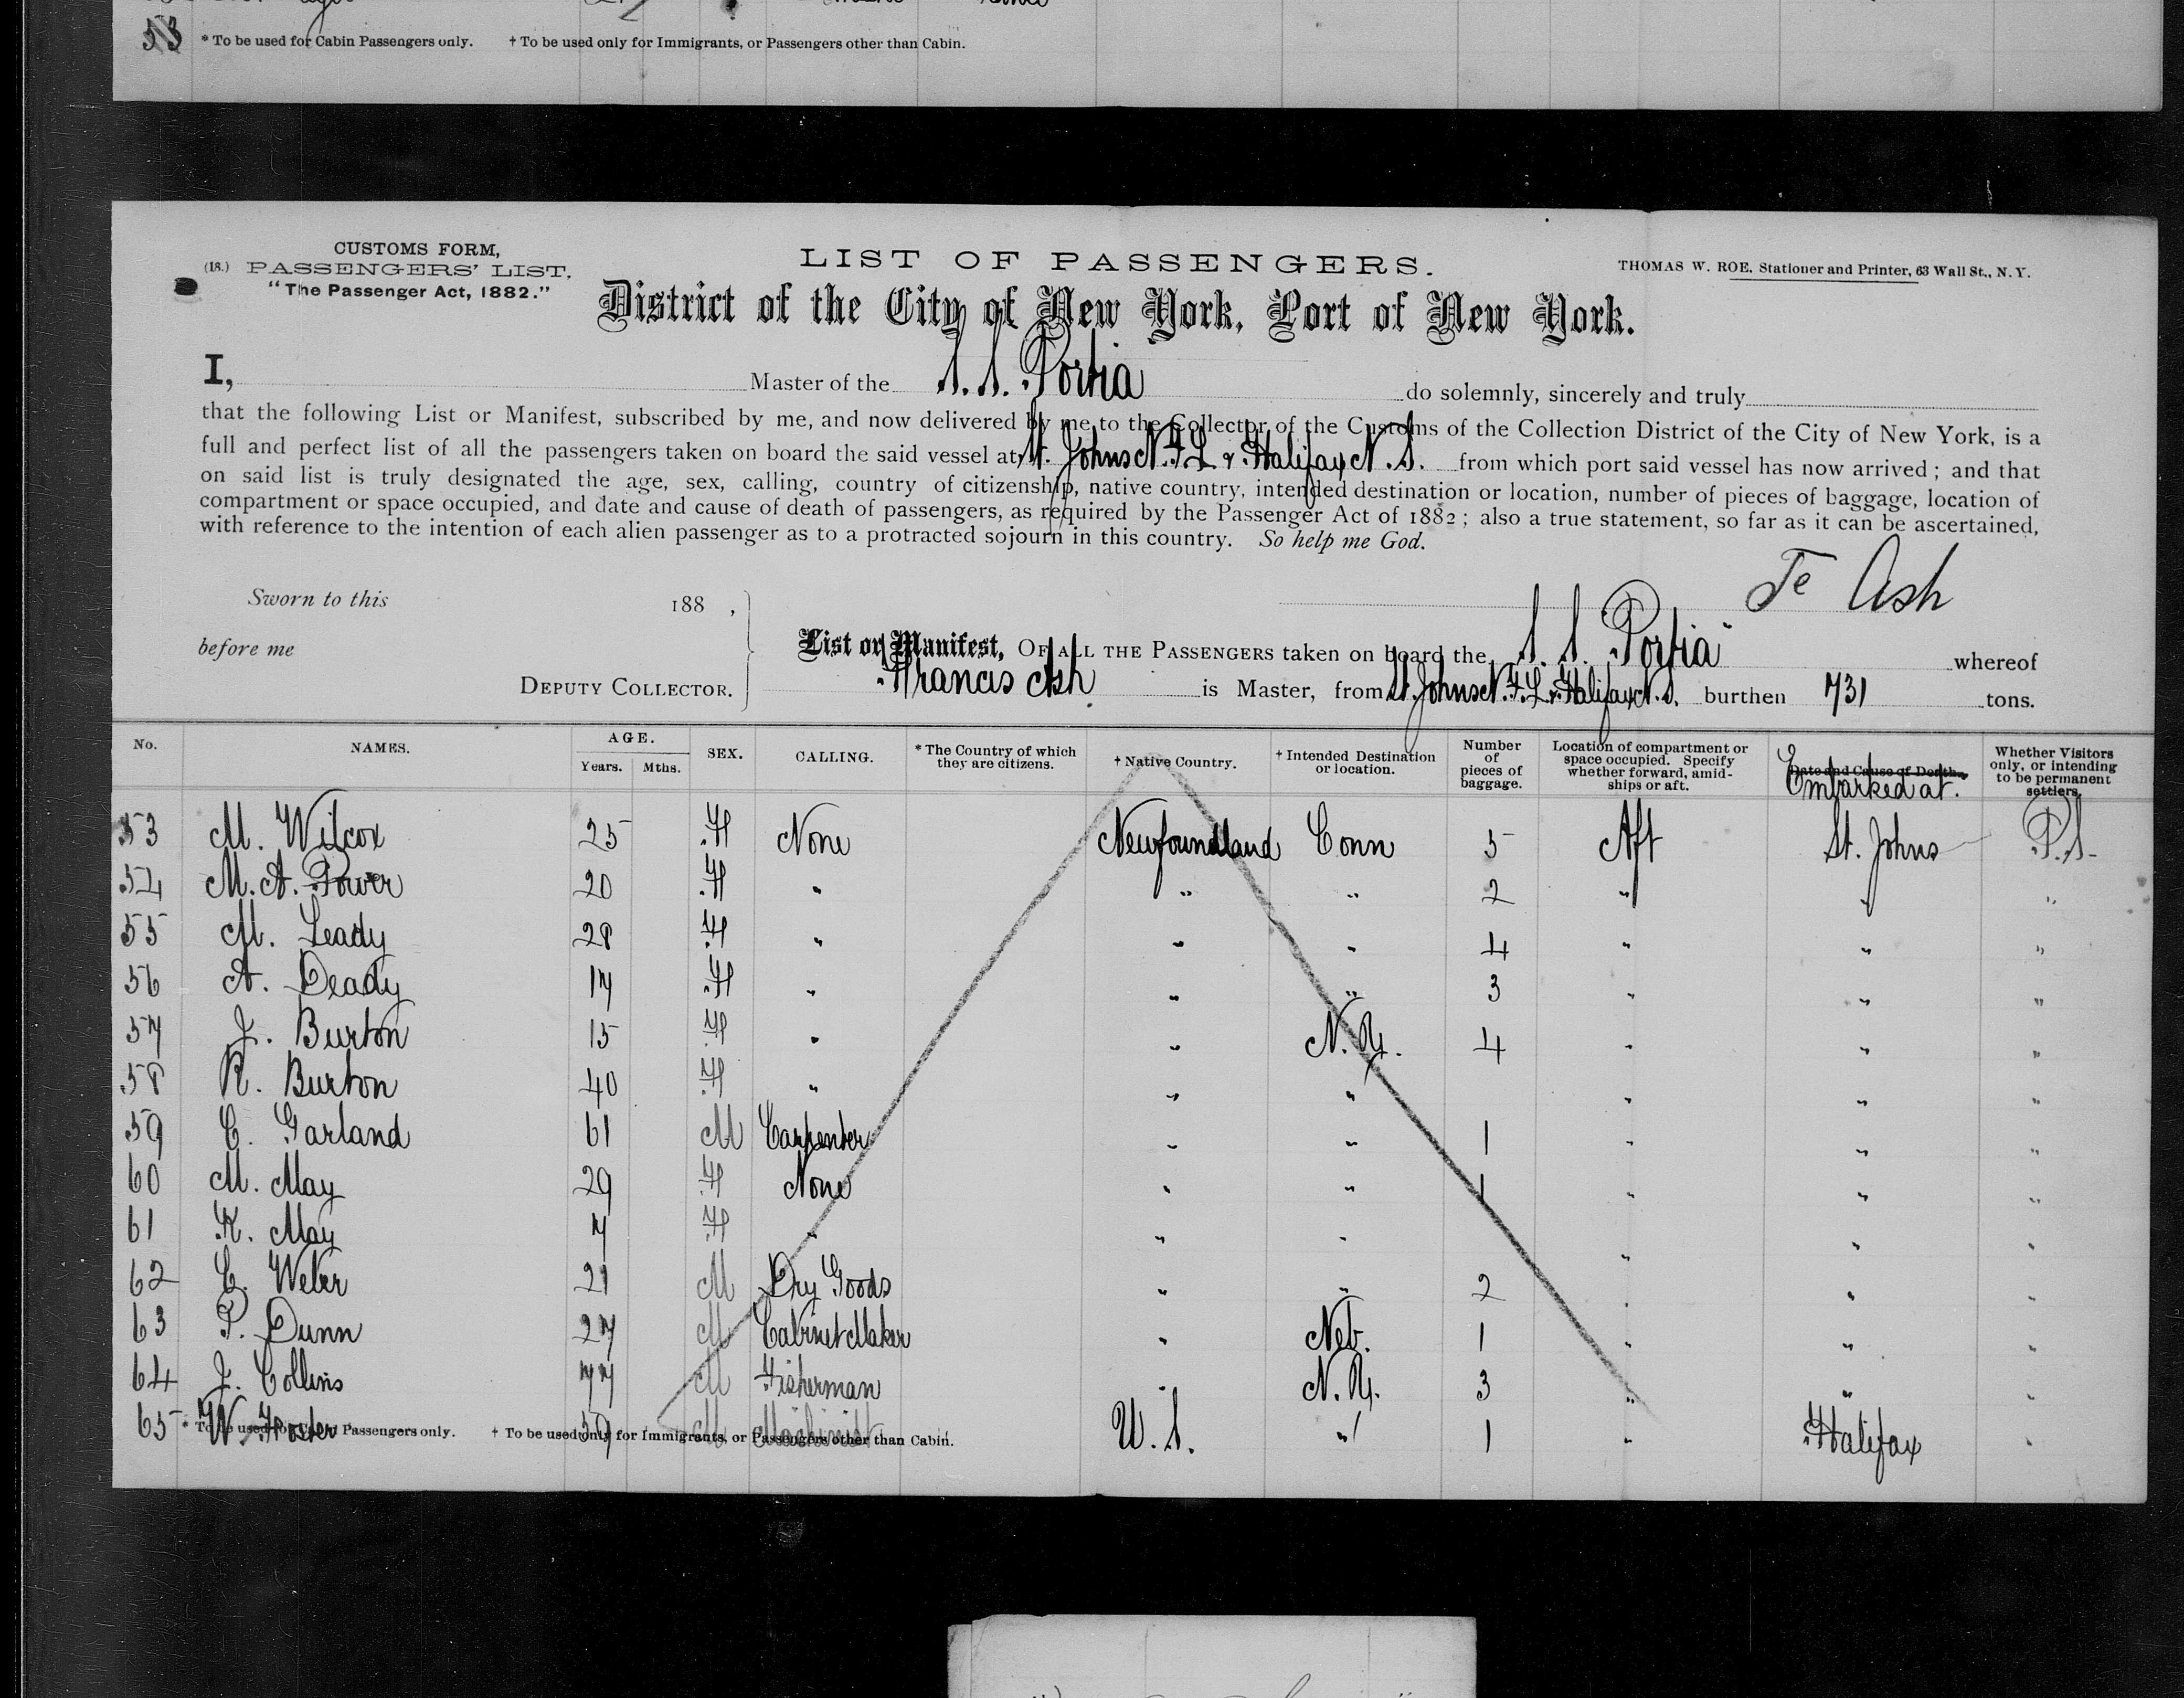 53 * To be used for Cabin Passengers only. † To be used only for Immigrants, or Passengers other than Cabin.
CUSTOMS FORM,
(18.) PASSENGERS' LIST,
"The Passenger Act, 1882."
LIST OF PASSENGERS.
THOMAS W. ROE, Stationer and Printer, 63 Wall St., N.Y.
District of the City of New York, Port of New York.
I, Master of the S. S. Portia do solemnly, sincerely and truly
that the following List or Manifest, subscribed by me, and now delivered by me to the Collector of the Customs of the Collection District of the City of New York, is a
full and perfect list of all the passengers taken on board the said vessel at St. Johns N.F.L. & Halifax N.S. from which port said vessel has now arrived; and that
on said list is truly designated the age, sex, calling, country of citizenship, native country, intended destination or location, number of pieces of baggage, location of
compartment or space occupied, and date and cause of death of passengers, as required by the Passenger Act of 1882; also a true statement, so far as it can be ascertained,
with reference to the intention of each alien passenger as to a protracted sojourn in this country. So help me God.
Ash
Sworn to this 188 ,
before me
DEPUTY COLLECTOR.
List or Manifest, OF ALL THE PASSENGERS taken on board the S. S. Portia whereof
Francis Ash is Master, from St. Johns N.F.L. & Halifax N.S. burthen 731 tons.
No. NAMES. AGE. Years. Mths. SEX. CALLING. * The Country of which they are citizens. † Native Country. † Intended Destination or location. Number of pieces of baggage. Location of compartment or space occupied. Specify whether forward, amidships or aft. Date and Cause of Death. Embarked at. Whether Visitors only, or intending to be permanent settlers.
53 M. Wilcox 25 F None Newfoundland Conn 5 Aft St. Johns P.S.
54 M. A. Power 20 F " " " 2 " " "
55 M. Leady 28 F " " " 4 " " "
56 A. Deady 17 F " " " 3 " " "
57 J. Burton 15 F " " N. Y. 4 " " "
58 R. Burton 40 F " " " " " "
59 C. Garland 61 M Carpenter " " 1 " " "
60 M. May 29 F None " " 1 " " "
61 K. May 7 F " " " " " "
62 C. Weber 21 M Dry Goods " " 2 " " "
63 P. Dunn 27 M Cabinet Maker " Neb. 1 " " "
64 J. Collins 77 M Fisherman " N. Y. 3 " " "
65 W. Foster 39 M Machinist U. S. " 1 " Halifax "
* To be used for Cabin Passengers only. † To be used only for Immigrants, or Passengers other than Cabin.